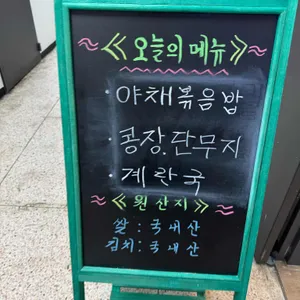 ~<< 오늘의 메뉴 >>~
· 야채볶음밥
· 콩장.단무지
· 계란국
~<< 원산지 >>~
쌀 : 국내산
김치 : 국내산